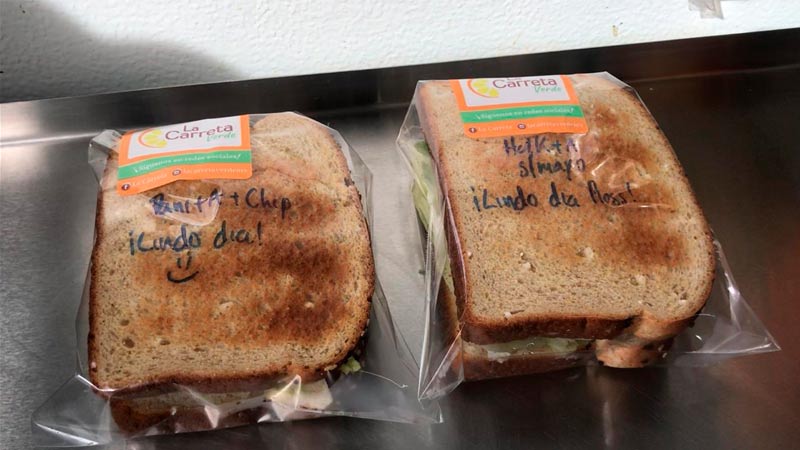 La
Carreta
Verde
¡Síguenos en redes sociales!
La Carreta
+ A + Chip
¡Lindo día!
La
Carreta
Verde
¡Síguenos en redes sociales!
La Carreta
s/mayo
¡Lindo día Ross!